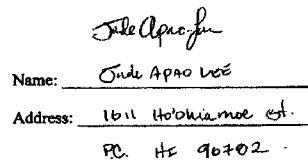 Jade Apao-Lee
Name: Jade APAO LEE
Address: 1611 Ho'ohiamoe st.
P.C. HI 96782